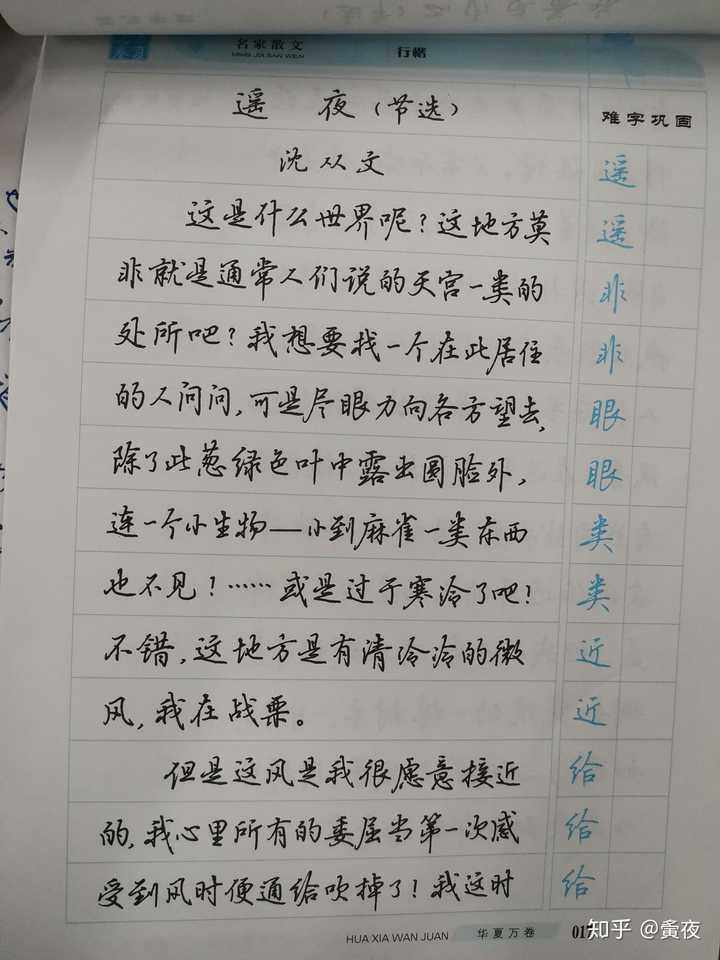 名家散文
MING JIA SAN WEN
行楷
遥 夜（节选）
难字巩固
沈从文
这是什么世界呢？这地方莫
非就是通常人们说的天宫一类的
处所吧？我想要找一个在此居住
的人问问，可是尽眼力向各方望去，
除了此葱绿色叶中露出圆脸外，
连一个小生物——小到麻雀一类东西
也不见！……或是过于寒冷了吧！
不错，这地方是有清泠泠的微
风，我在战栗。
但是这风是我很愿意接近
的，我心里所有的委屈当第一次感
受到风时便通给吹掉了！我这时
遥
遥
非
非
眼
眼
类
类
近
近
给
给
给
HUA XIA WAN JUAN
华夏万卷
017
知乎 @夤夜